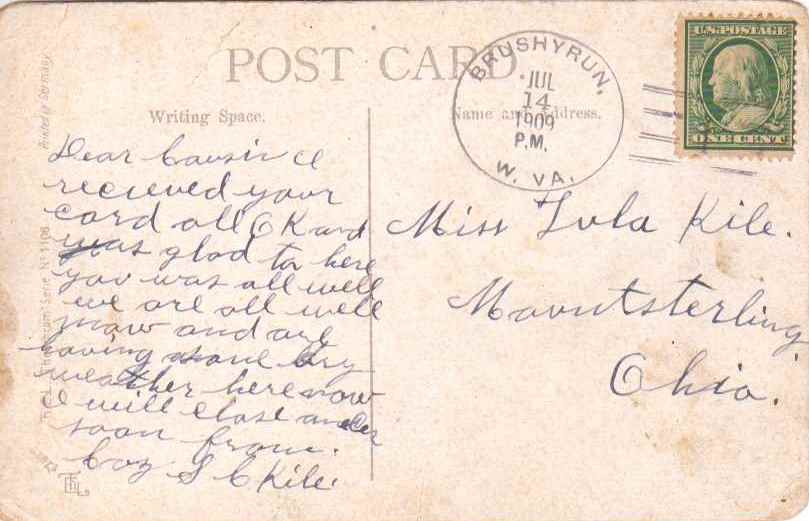 POST CARD
Writing Space.
Name and Address.
BRUSHYRUN,
JUL
14
1909
P.M.
W. VA.
U.S. POSTAGE
ONE CENT
Printed in Germany
Dear Cousin I
recieved your
card all OK and
was glad to here
you was all well
we are all well
now and are
having some dry
weather here now
I will close
soon from.
Coz S C Kile.
Miss Lula Kile.
Mountsterling
Ohio.